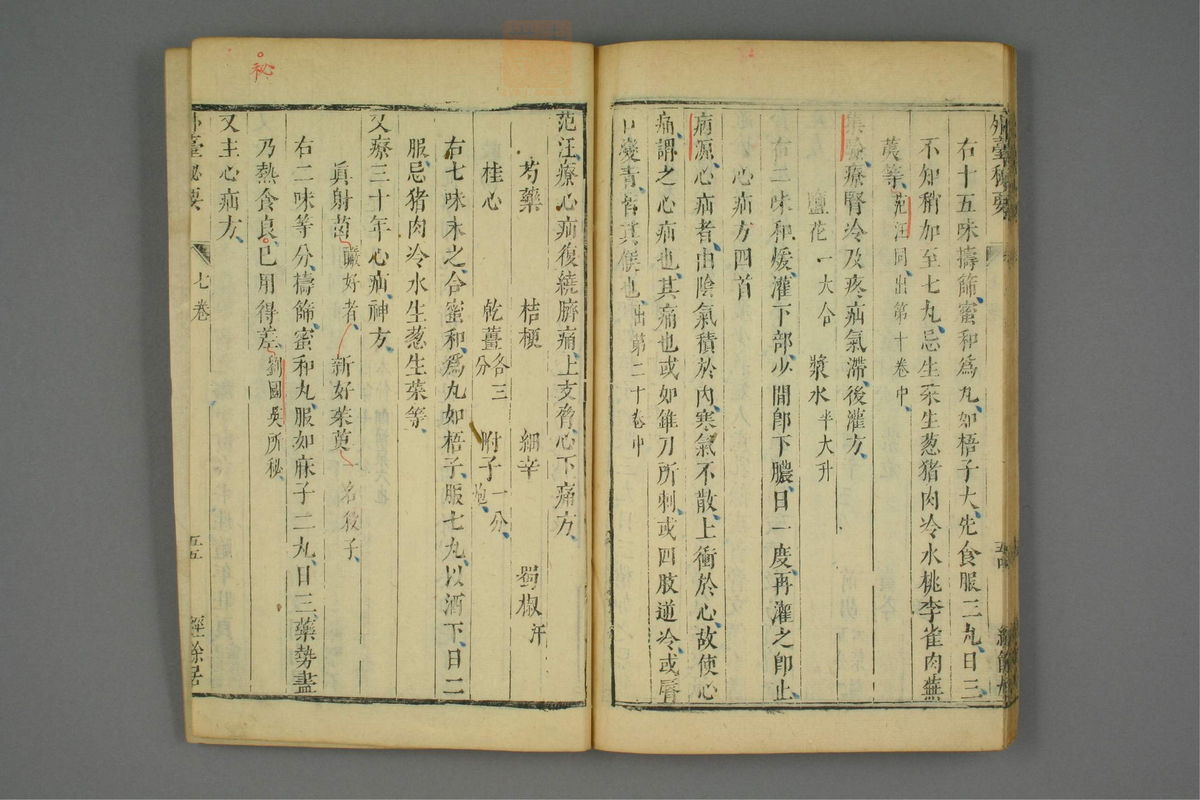 外臺秘要
右十五味擣篩蜜和爲丸如梧子大先食服三丸日三
不知稍加至七丸忌生菜生葱猪肉冷水桃李雀肉蕪
荑等范汪同出第十卷中
集驗療腎冷及疼疝氣滯後灌方
鹽花一大合 漿水半大升
右二味和煖灌下部少間卽下膿日一度再灌之卽止
心疝方四首
病源心疝者由陰氣積於內寒氣不散上衝於心故使心
痛謂之心疝也其痛也或如錐刀所刺或四肢逆冷或脣
口變青皆其候也出第二十卷中
五四
范汪療心疝復繞臍痛上支脅心下痛方
芍藥 桔梗 細辛 蜀椒汗
桂心 乾薑各三分 附子一分炮
右七味末之合蜜和爲丸如梧子服七丸以酒下日二
服忌猪肉冷水生葱生菜等
又療三十年心疝神方
眞射䓛臟好者 新好茱萸一名殺子
右二味等分擣篩蜜和丸服如麻子二丸日三藥勢盡
乃熱食良已用得差劉國英所秘
又主心疝方
外臺秘要 七卷 五五 經餘居
秘